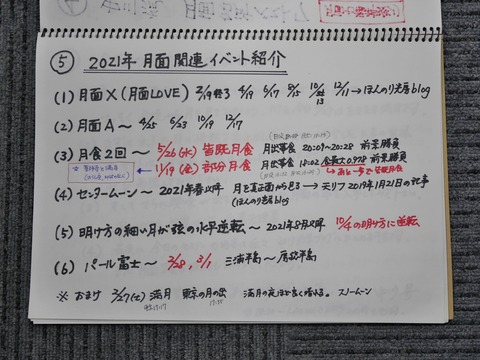 ⑤ 2021年 月面関連イベント紹介
(1) 月面X (月面LOVE) 2/19終了 4/19 6/17 8/15 10/13 12/11 → ほんのり光房blog
(2) 月面A ～ 4/25 6/23 10/19 12/17
(3) 月食2回 ～ 5/26 (水) 皆既月食 月出帯食 20:09～20:28 前菜勝負
← 11/19 (金) 部分月食 月出帯食 18:02 食最大0.978 前菜勝負
→ あと一歩で皆既月食
(4) センタームーン ～ 2021年春以降 月を真正面から見る → 天リフ 2019年1月21日の記事
ほんのり光房blog
(5) 明け方の細い月が弦の水平逆転 ～ 2021年8月以降 10/4の明け方に逆転
(6) パール富士 ～ 2/28, 3/1 三浦半島～房総半島
※ おまけ 2/27(土) 満月 東京の月の出 満月の夜ほど良く晴れる。スノームーン
17:17